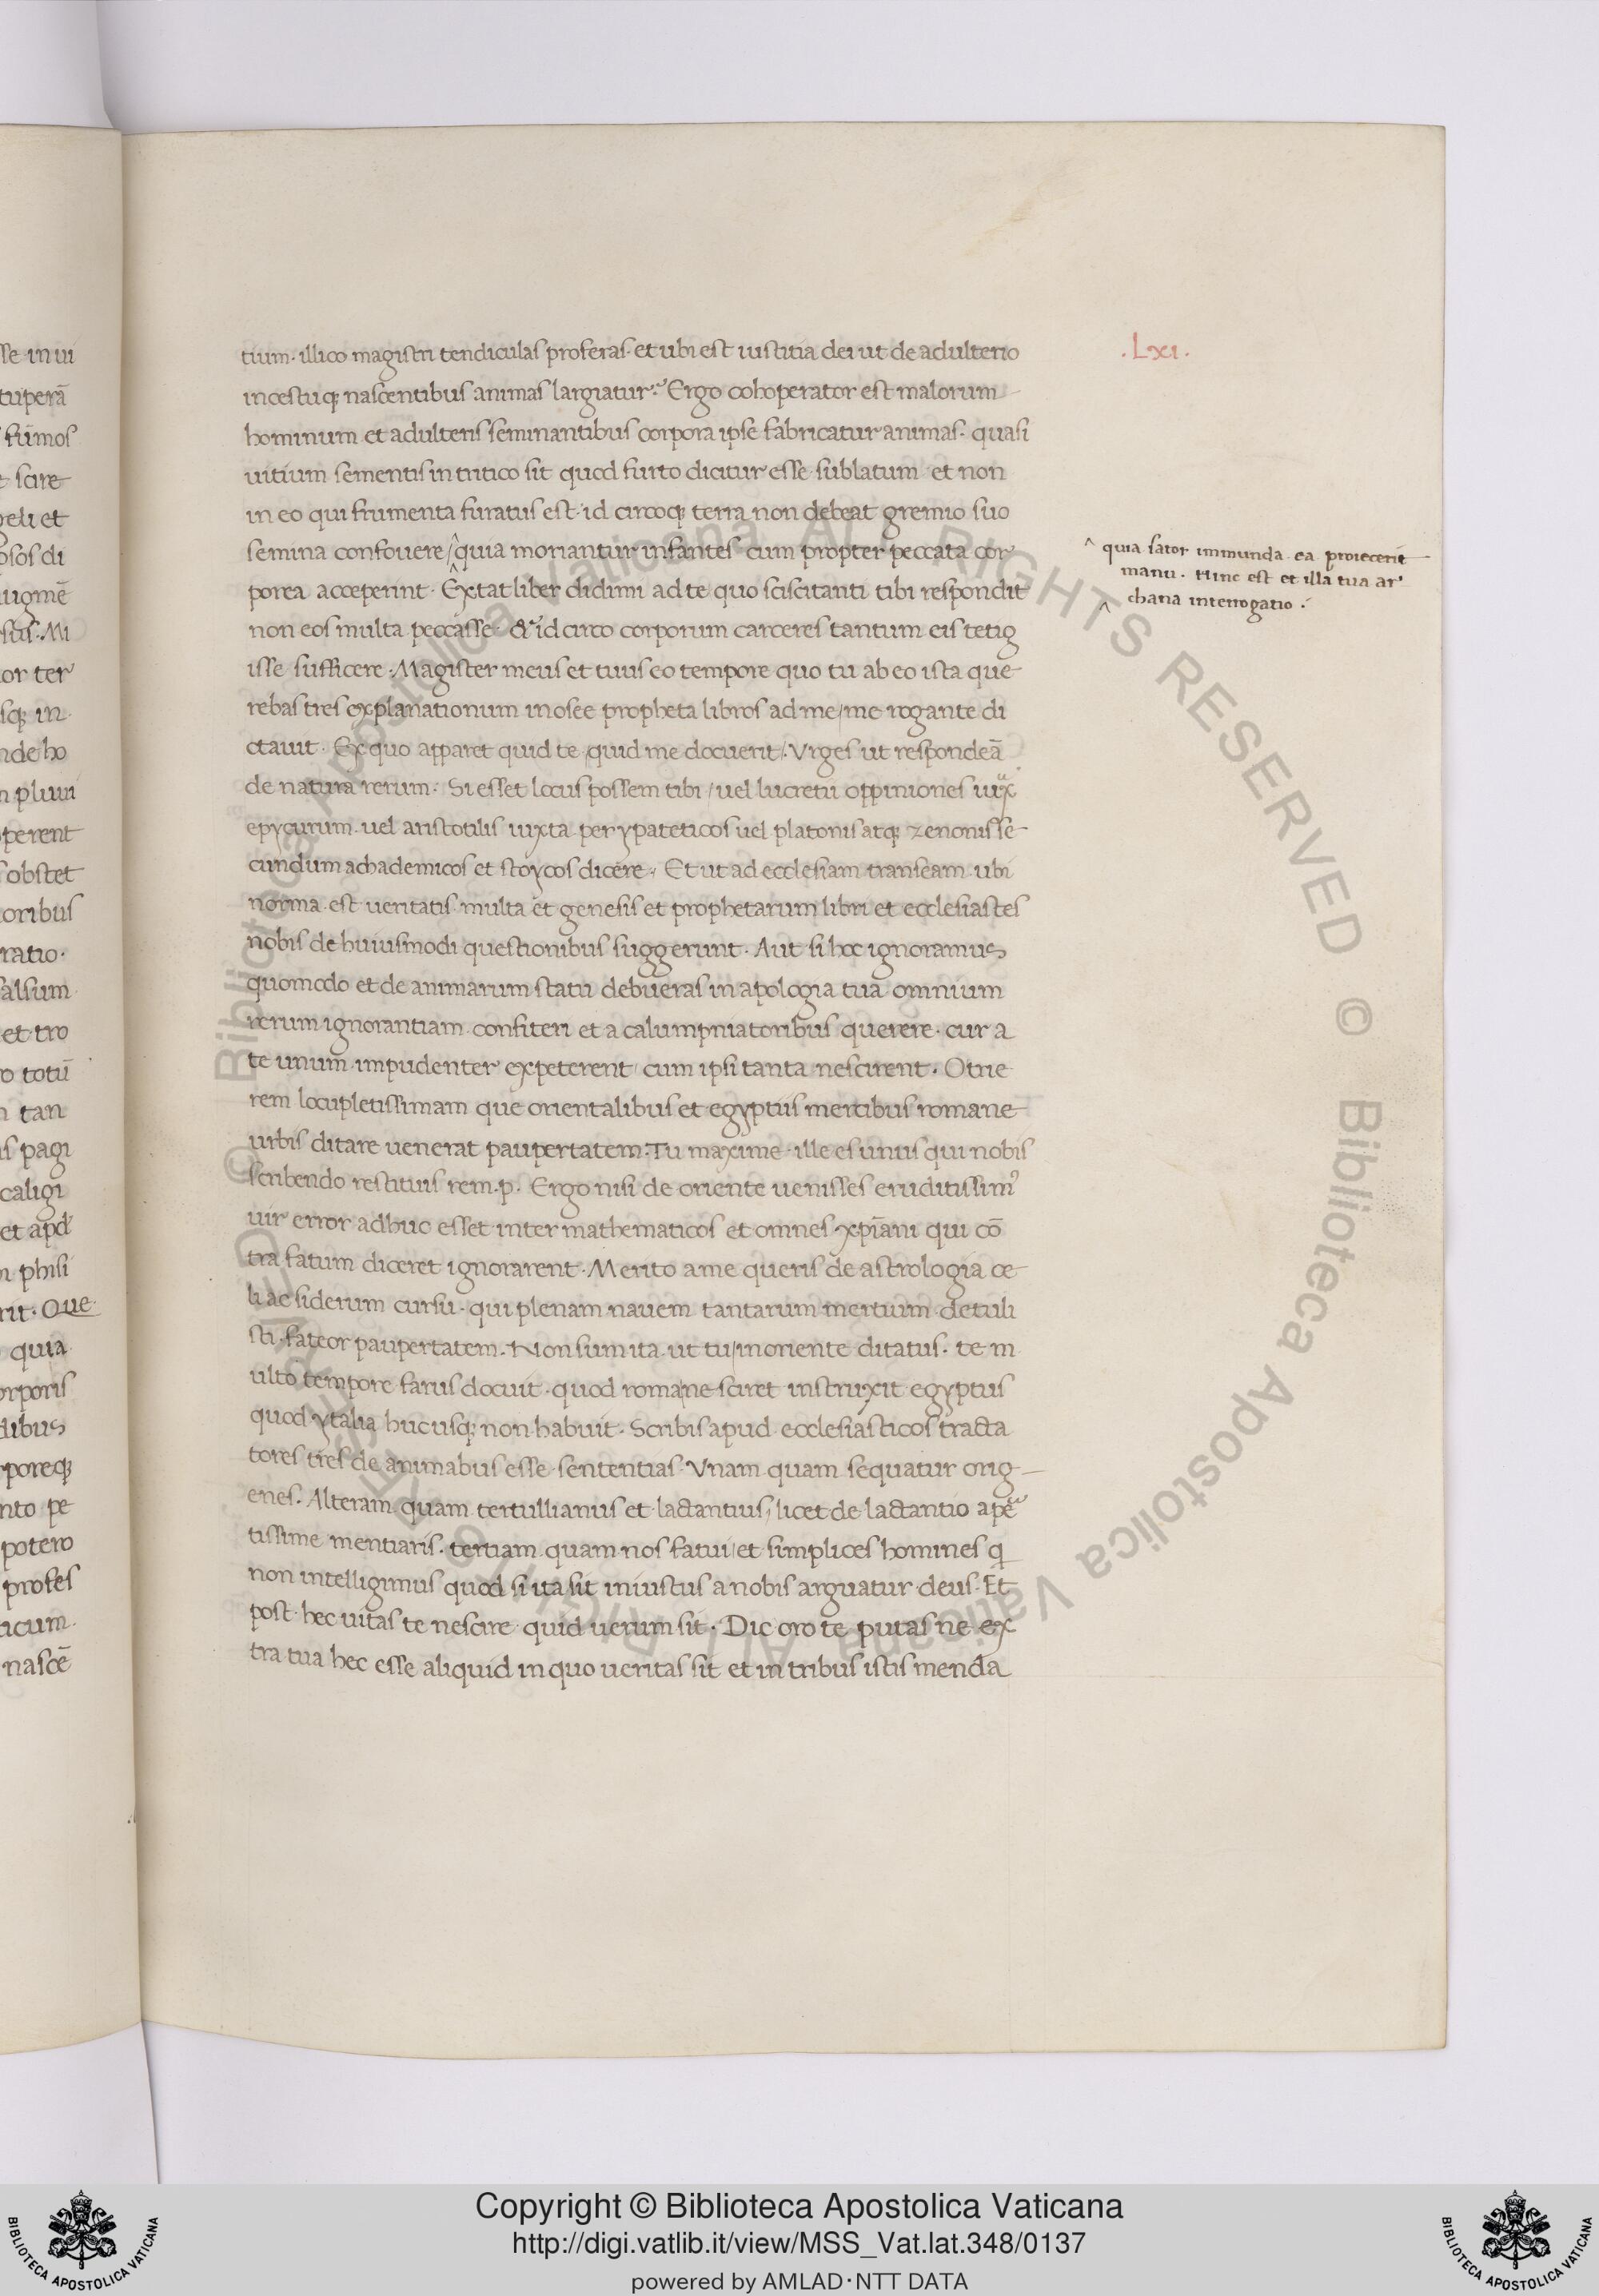 .Lxi.
tium. illico magistri tendiculas proferas. et ubi est iustitia dei ut de adulterio
incestuq; nascentibus animas largiatur? Ergo cohoperator est malorum
hominum et adulteris seminantibus corpora ipse fabricatur animas. quasi
uitium sementis in tritico sit quod furto dicitur esse sublatum et non
in eo qui frumenta furatus est. id circoq; terra non debeat gremio suo
semina confouere / ^ quia moriantur infantes cum propter peccata cor
porea acceperint. Extat liber didimi ad te quo sciscitanti tibi respondit
non eos multa peccasse. & id circo corporum carceres tantum eis tetig
isse sufficere. Magister meus et tuus eo tempore quo tu ab eo ista que
rebas tres explanationum in osee propheta libros ad me / me rogante di
ctauit. Ex quo apparet quid te / quid me docuerit. Vrges ut respondeā
de natura rerum. Si esset locus possem tibi / uel lucretii oppiniones iux
epycurum. uel aristotilis iuxta perypateticos uel platonis atq; zenonis se
cundum achademicos et stoycos dicere. Et ut ad ecclesiam transeam ubi
norma est ueritatis multa et genesis et prophetarum libri et ecclesiastes
nobis de huiusmodi questionibus suggerunt. Aut si hoc ignoramus
quomodo et de animarum statu debueras in apologia tua omnium
rerum ignorantiam confiteri et a calumpniatoribus querere. cur a
te unum impudenter expeterent cum ipsi tanta nescirent. O trie
rem locupletissimam que orientalibus et egyptiis mercibus romane
urbis ditare uenerat paupertatem. Tu maxime ille es unus qui nobis
scribendo restituis rem. p. Ergo nisi de oriente uenisses eruditissim⁹
uir error adhuc esset inter mathematicos et omnes xp̄iani qui cō
tra fatum diceret ignorarent. Merito a me queris de astrologia ce
li ac siderum cursu. qui plenam nauem tantarum mertium detuli
sti. fateor paupertatem. Non sum ita ut tu / in oriente ditatus. te m
ulto tempore farus docuit. quod romane sciret instruxit egyptus
quod ytalia hucusq; non habuit. Scribis apud ecclesiasticos tracta
tores tres de animabus esse sententias. Vnam quam sequatur orig
enes. Alteram quam tertullianus et lactantius, licet de lactantio apē
tissime mentiaris. tertiam quam nos fatui / et simplices homines q̄
non intelligimus quod si ita sit iniustus a nobis arguatur deus. Et
post hec uitas te nescire quid uerum sit. Dic oro te putas ne ex
tra tua hec esse aliquid in quo ueritas sit et in tribus istis menda
^ quia sator immunda ea proiecerit
manu. Hinc est et illa tua ar
chana interrogatio.
sse in ui
tuperā
fumos
scire
eli et
osos di
iugmē
sus. Mi
or ter
sq; in
nde ho
n pluui
perent
obstet
oribus
ratio.
alsum
et tro
o totū
tan
s pagi
caligi
et apd
phisi
rit. Que
quia
orporis
dibus
rporeq;
nto pe
potero
profes
icum
nascē
© Biblioteca Apostolica Vaticana ALL RIGHTS RESERVED © Biblioteca Apostolica Vaticana ALL RIGHTS RESERVED
BIBLIOTECA APOSTOLICA VATICANA
Copyright © Biblioteca Apostolica Vaticana
http://digi.vatlib.it/view/MSS_Vat.lat.348/0137
powered by AMLAD·NTT DATA
BIBLIOTECA APOSTOLICA VATICANA